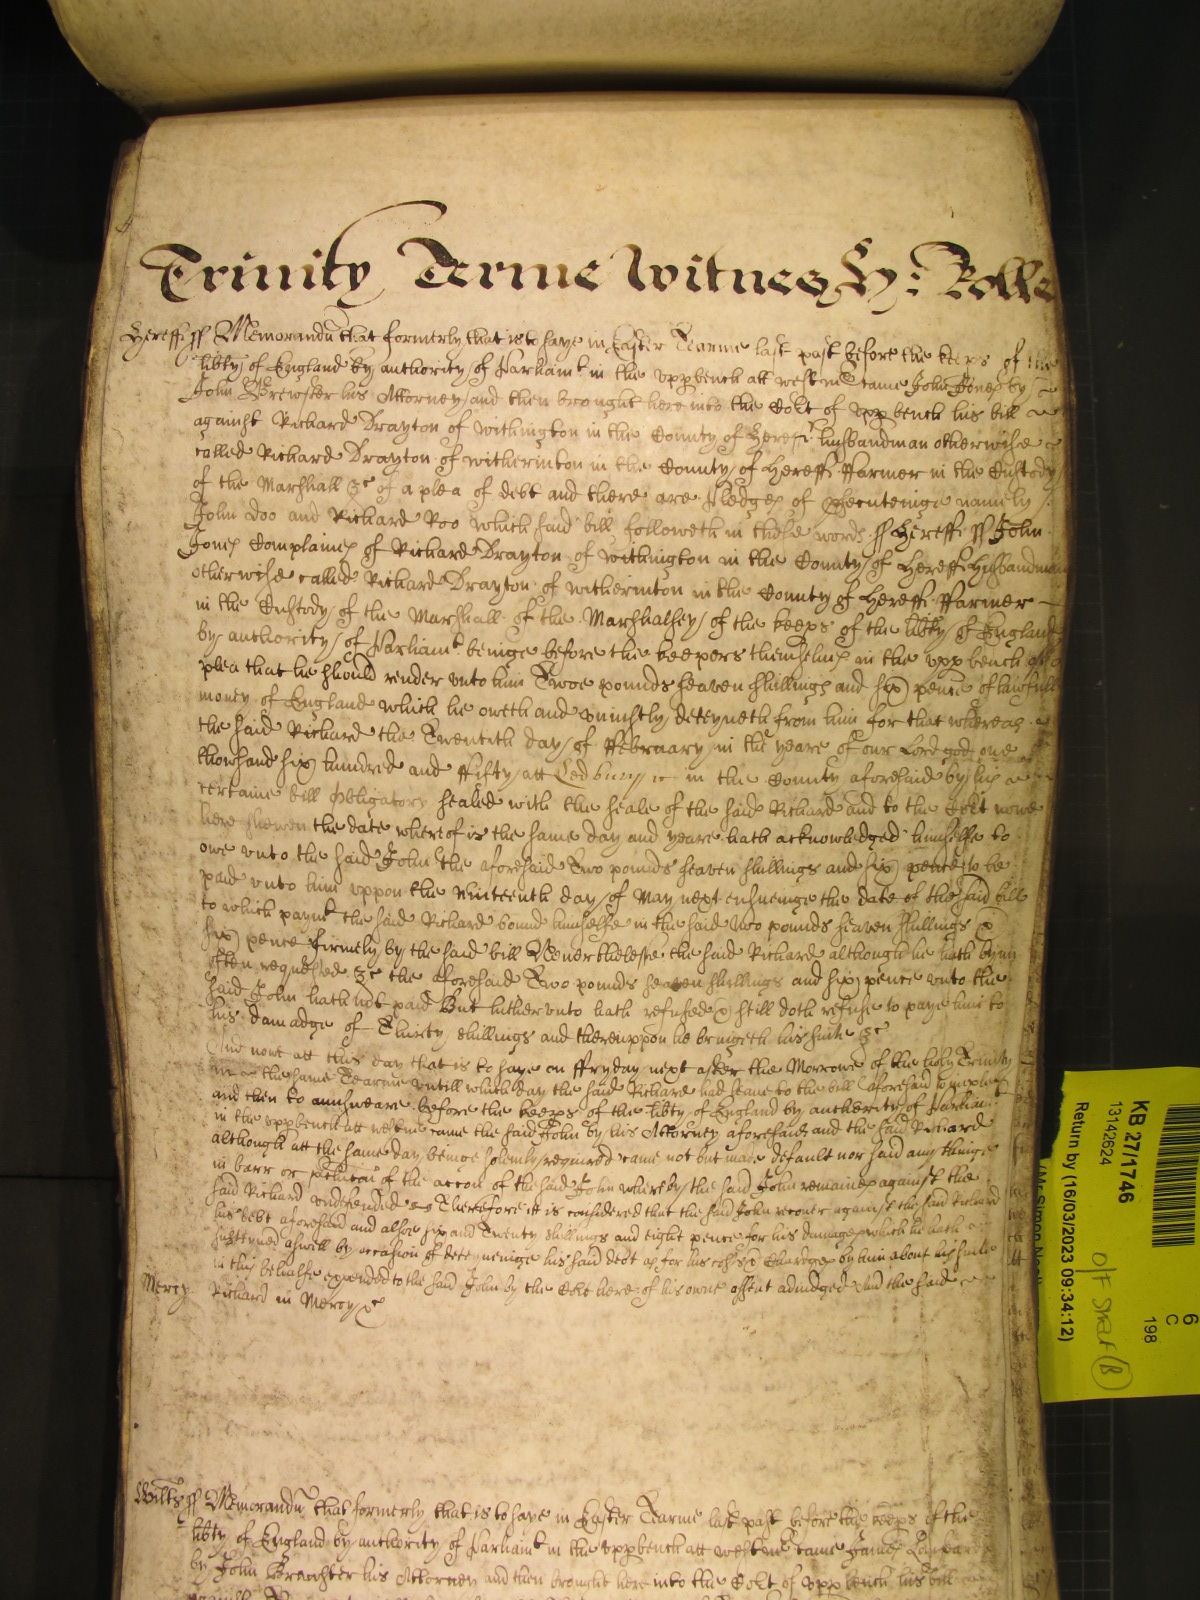 Trinity Terme Witnes H: Rolle
Hereff ss Memorandu that formerly that is to saye in Easter Tearme last past before the keeps of the
libty of England by authority of Parliamt in the upp bench att westm came John Jones by
John Brewster his Attorney and then brought here into the Cort of upp bench his bill
against Richard Drayton of Withington in the County of Heref husbandman otherwise
called Richard Drayton of witherinton in the County of Hereff ffarmer in the Custody
of the Marshall &c of a plea of debt and there are pledges of psecuteinge namely
John Doo and Richard Roo which said bill followeth in these words ss Hereff ss John
Jones Complaines of Richard Drayton of Withington in the County of Hereff Husbandman
otherwise called Richard Drayton of witherinton in the County of Hereff ffarmer
in the Custody of the Marshall of the Marshalsey of the keeps of the libty of England
by authority of Parliamt beinge before the keepers themselves in the upp bench of a
plea that he should render unto him Twoe pounds seaven shillings and six pence of lawfull
money of England which he oweth and uniustly deteyneth from him for that whereas
the said Richard the Twentith day of ffebruary in the yeare of our Lord god one
thowsand six hundred and ffifty att Ledbury in the County aforesaid by his
certaine bill Obligatory sealed with the seale of the said Richard and to the Cort nowe
here shewen the date wherof is the same day and yeare hath acknowledged himselfe to
owe unto the said John the aforesaid Two pounds seaven shillings and six pence to be
paid unto him uppon the Ninteenth day of May next ensueinge the date of the said bill
to which paymt the said Richard bound himselfe in the said two pounds seaven shillings &
six pence firmely by the said bill Neverthelesse the said Richard although he hath byn
often requested &c the aforesaid Two pounds seaven shillings and six pence unto the
said John hath not paid But hitherunto hath refused & still doth refuse to paye him to
his damadge of Thirty shillings and thereuppon he bringeth his suite &c
And now att this day that is to saye on ffryday next after the Morrowe of the holy Trinity
in the same Tearme untill which day the said Richard had leave to the bill aforesaid to imparle
and then to aunsweare before the keeps of the libty of England by authority of Parliamt
in the uppbench att westm came the said John by his Attorney aforesaid and the said Richard
although att the same day beinge solemly required came not but made default nor said any thinge
in barr or preclucon of the accon of the said John whereby the said John remaines against the
said Richard undefended Therefore it is considered that the said John recover against the said Richard
his debt aforesaid and alsoe six and Twenty shillings and eight pence for his damages which he hath
susteyned aswell by occasion of deteyneinge his said debt as for his costs & Chardges by him about his suite
in this behalfe expended to the said John by the Cort here of his owne assent adiudged And the said
Mercy Richard in Mercy &c
Wilts ss Memorandu that formerly that is to saye in Easter Tearme last past before the keeps of the
libty of England by authority of Parliamt in the upp bench att westm came James
by John Brewster his Attorney and then brought here into the Cort of upp bench his bill
KB 27/1746
13142624
Return by (16/03/2023 09:34:12)
6
C
198